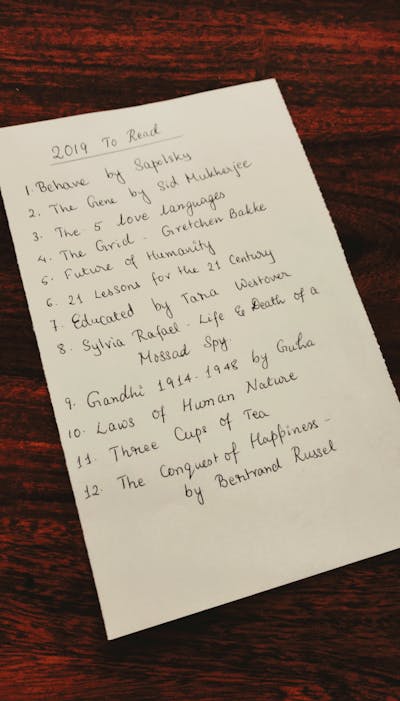 2019 To Read
1. Behave by Sapolsky
2. The Gene by Sid Mukherjee
3. The 5 love languages
4. The Grid - Gretchen Bakke
5. Future of Humanity
6. 21 Lessons for the 21 Century
7. Educated by Tara Westover
8. Sylvia Rafael - Life & Death of a
Mossad Spy
9. Gandhi 1914-1948 by Guha
10. Laws of Human Nature
11. Three Cups of Tea
12. The Conquest of Happiness -
by Bertrand Russel